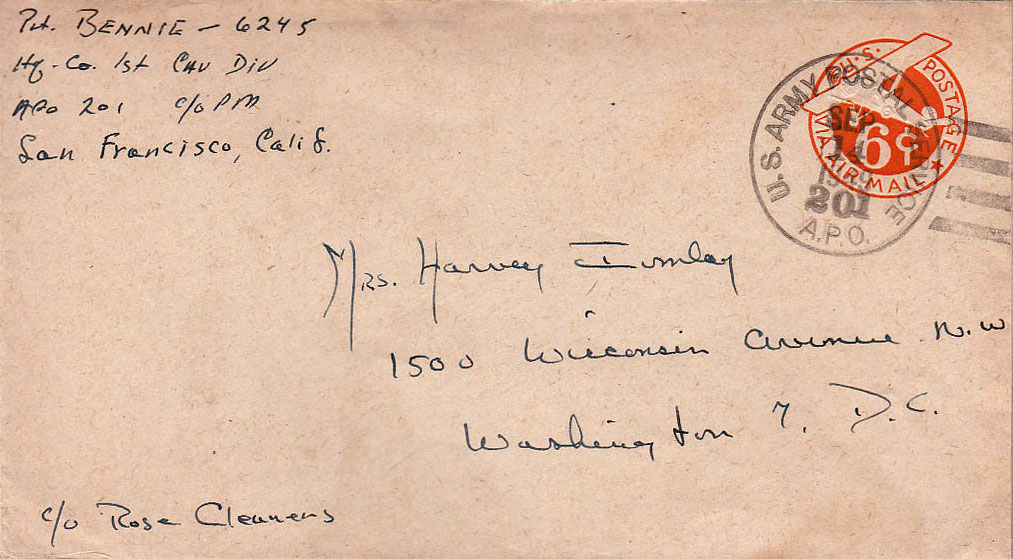 Pvt. BENNIE – 6245
Hq. Co. 1st CAV DIV
APO 201 c/o PM
San Francisco, Calif.
U.S. POSTAGE
VIA AIR MAIL
6¢
U.S. ARMY POSTAL SERVICE
SEP
14
201
A.P.O.
Mrs. Harvey Iumlay
1500 Wisconsin Avenue N.W
Washington 7, D.C.
c/o Rose Cleaners